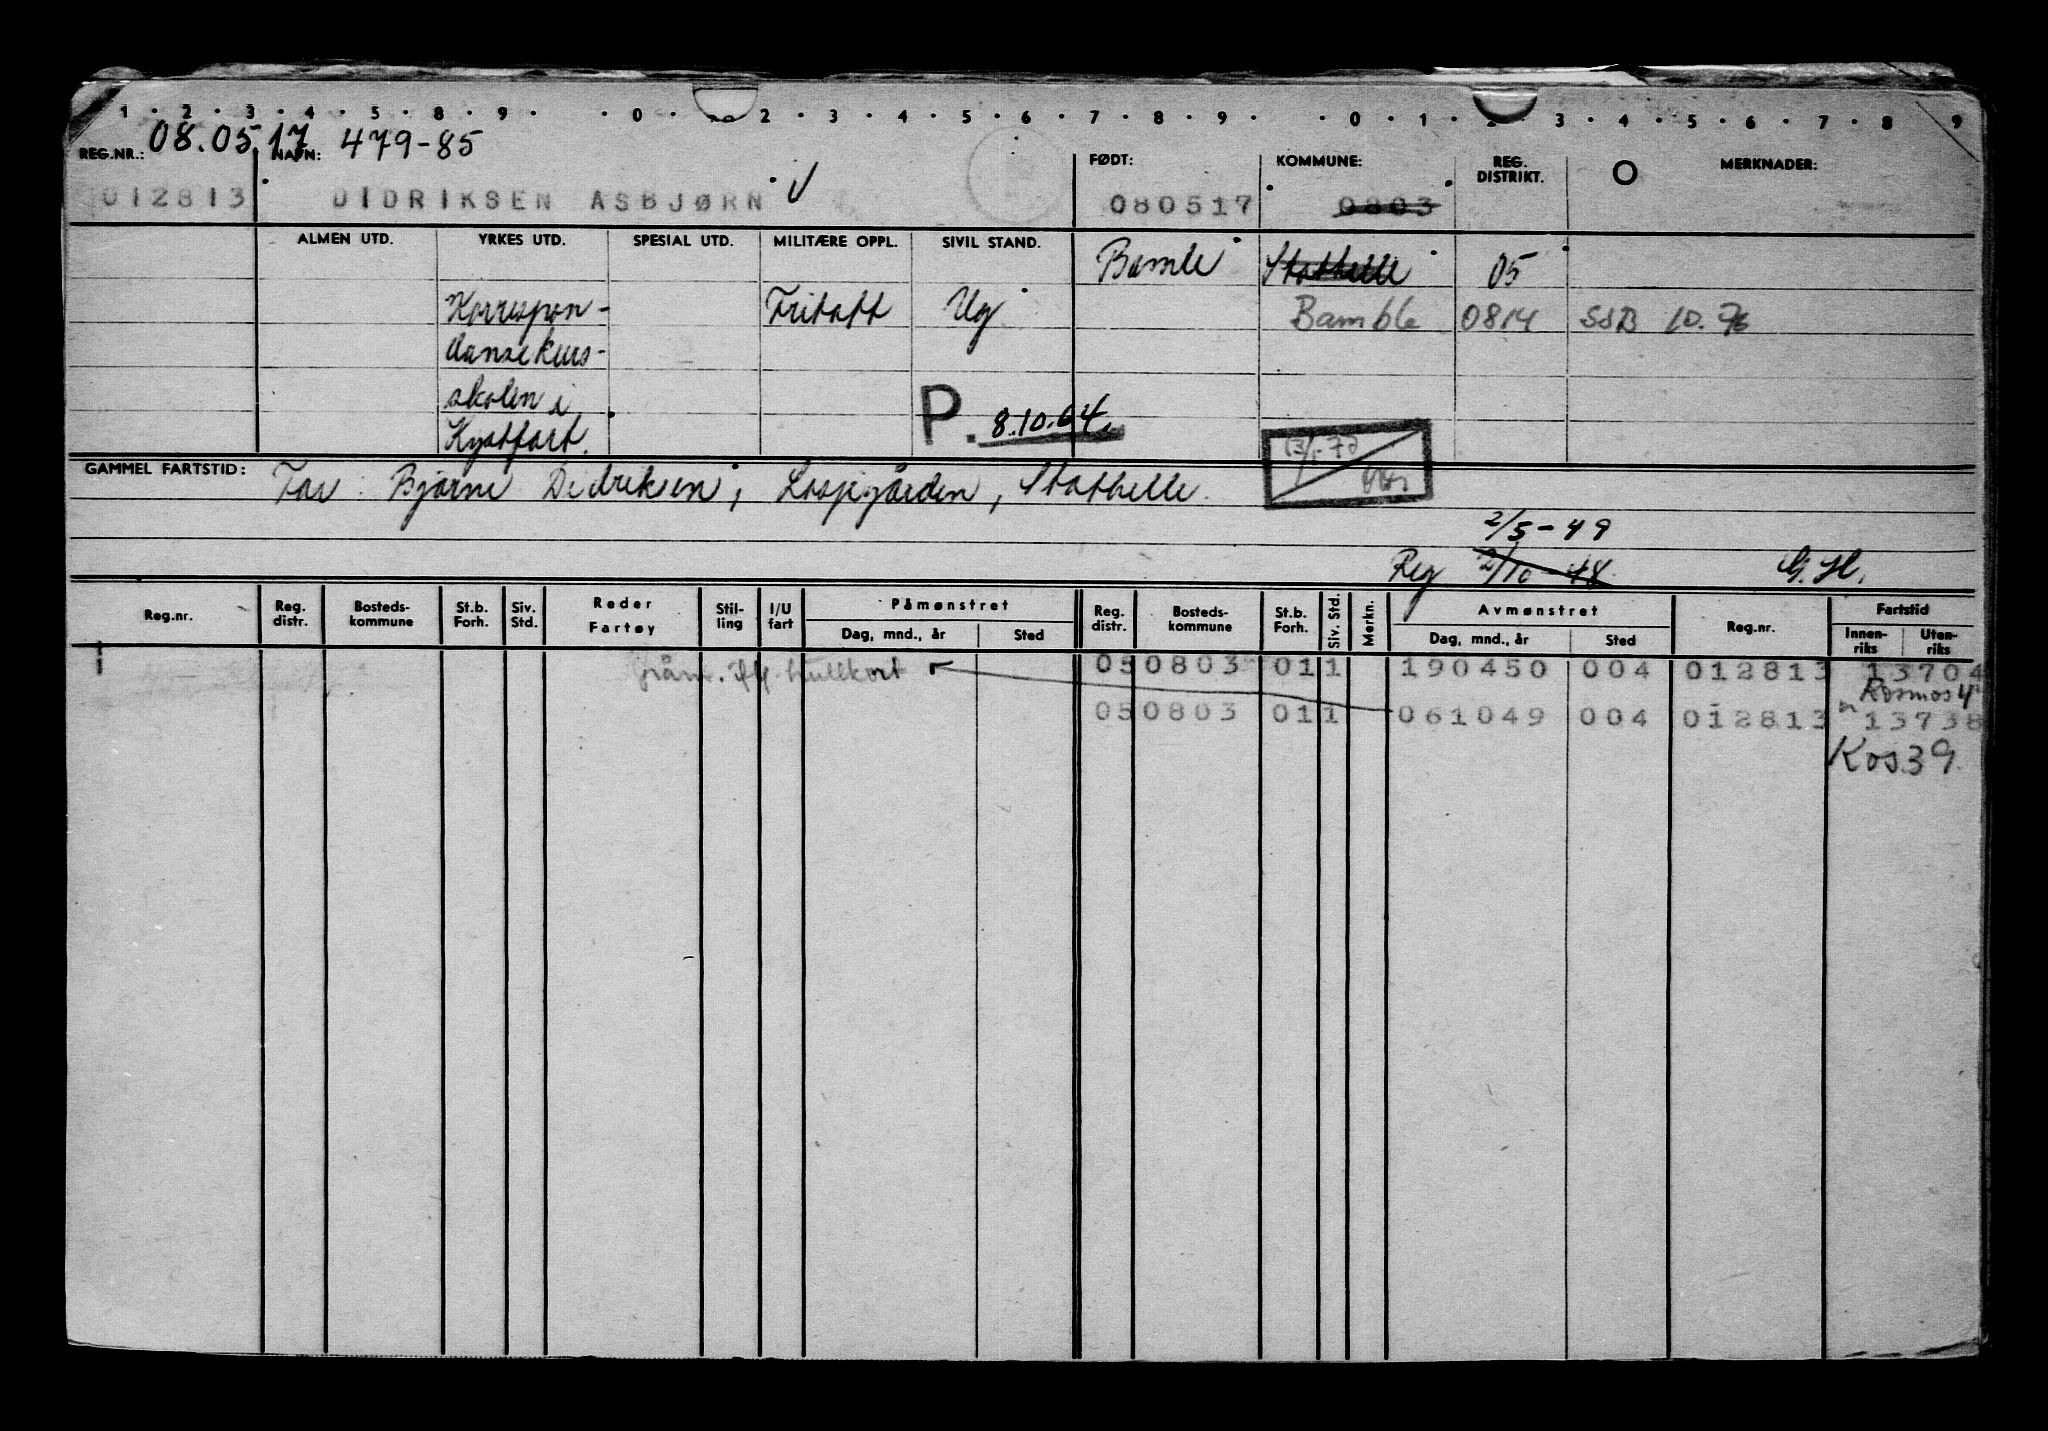 1 · 2 · 3 · 4 · 5 · 8 · 9 · · 0 · 2 · 3 · 4 · 5 · 6 · 7 · 8 · 9 · · 0 · 1 · 2 · 3 · 4 · 5 · 6 · 7 · 8 9
REG.NR.: 08.05.17 NAVN: 479-85 FØDT: KOMMUNE: REG. DISTRIKT. O MERKNADER:
012813 DIDRIKSEN ASBJØRN V 080517 0803
ALMEN UTD. YRKES UTD. SPESIAL UTD. MILITÆRE OPPL. SIVIL STAND. Bamle Stathelle 05
Korrespon- Fritatt Ug Bamble 0814 SSB 10.76
danse kurs-
skolen i P. 8.10.64.
Kystfart.
GAMMEL FARTSTID: Far: Bjarne Didriksen, Stathelle.
2/5-49
Reg 2/10-48 G.H.
Reg.nr. Reg. distr. Bosteds- kommune St.b. Forh. Siv. Std. Reder Fartøy Stil- ling I/U fart Påmønstret Dag, mnd., år Sted Reg. distr. Bosteds- kommune St.b. Forh. Siv. Std. Merkn. Avmønstret Dag, mnd., år Sted Reg.nr. Fartstid Innen- riks Uten- riks
hullkort 05 0803 01 1 190450 004 012813 13704
Kosmos 4
05 0803 01 1 061049 004 012813 13738
Kos 39